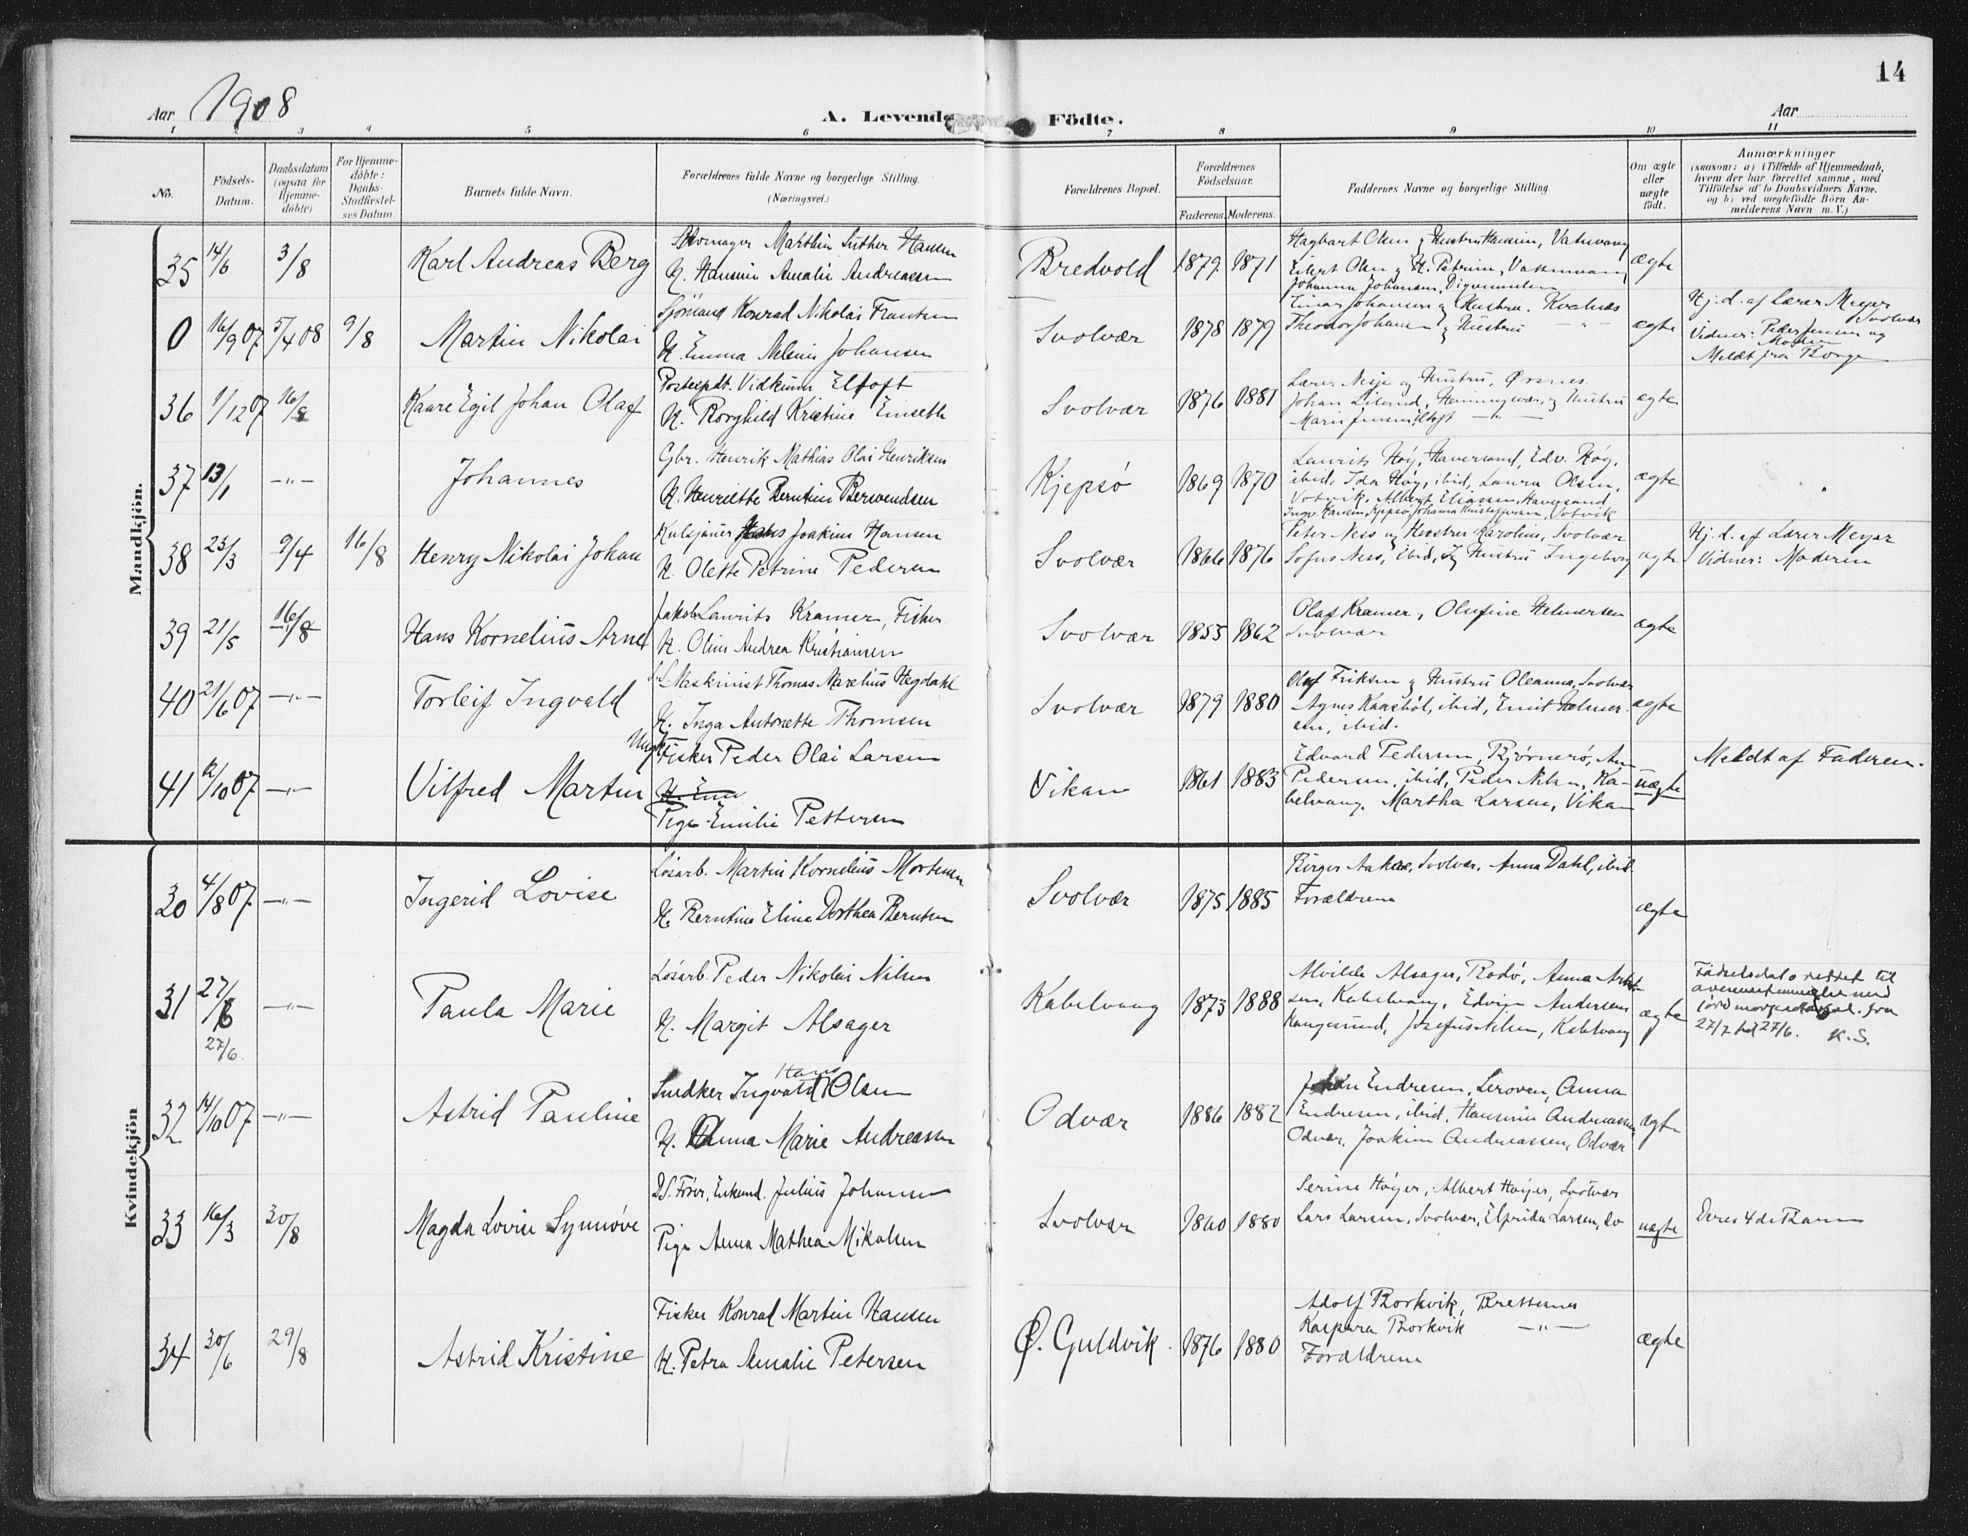 14
Aar 1908
A. Levende Födte.
Aar
1 2 3 4 5 6 7 8 9 10 11
No.
Födsels-Datum.
Daabsdatum (ogsaa for Hjemme-döbte)
For Hjemme-döbte: Daabs-Stadfæstel-ses Datum.
Barnets fulde Navn.
Forældrenes fulde Navne og borgerlige Stilling. (Næringsvei.)
Forældrenes Bopæl.
Forældrenes Födselsaar.
Faderens. Moderens.
Faddernes Navne og borgerlige Stilling.
Om ægte eller uægte födt.
Anmærkninger
(saasom: a) i Tilfælde af Hjemmedaab,
hvem der har forrettet samme, med
Tilföielse af to Daabsvidners Navne,
og b) ved uægtefödte Börn An-
melderens Navn m. V.)
Mandkjön.
35 14/6 3/8 Karl Andreas Berg
Skomager Marthin Luther Hansen
H. Hansine Amalie Andreassen
Bredvold 1879 1871
Hagbart Olsen og Hustru Hansine, Vatervang
Eilert Olsen og H. Petrine,
Johanna Johansen, Digermulen
ægte
0 16/9 07 5/4 08 9/8 Martin Nikolai
Sjömand Konrad Nikolai Frantsen
H. Emma Melenie Johansen
Svolvær 1878 1879
Einar Johansen og Hustru. Kvalnæs
Theodor Johansen og Hustru —"—
ægte
Hj. d. af Lærer Meyer
Svolvær
Vidner: Peder Jensen og
Moderen
Meldt fra Borge
36 1/12 07 16/8 Kaare Egil Johan Olaf
Postexpdt. Vidkunn Eltoft
H. Borghild Kristine Einseth
Svolvær 1876 1881
Lærer Nesje og Hustru, Ørsnes.
Johan Henningsvær, og Hustru
Marie Jensen Eltoft —"—
ægte
37 13/1 —"— Johannes
Gbr. Henrik Mathias Olai Henriksen
H. Henriette Berntine Berwendsen
Kjepsö 1869 1870
Laurits Høy, Haversand, Edv. Høy,
ibid, Ida Høy, ibid, Laura Olsen,
Votvik, Albert Eliassen, Haversand,
Inga Hansen, Kjepsø, Johanna Kristoffersen, Votvik
ægte
38 23/3 9/4 16/8 Henry Nikolai Johan
Kulsjauer Hans Joakim Hansen
H. Olette Petrine Pedersen
Svolvær 1866 1876
Peter Ness og Hustru Karoline, Svolvær
Sofus Ness, ibid, og Hustru Ingeborg
ægte
Hj. d. af Lærer Meyer
Vidner: Moderen
39 21/5 16/8 Hans Kornelius Arne
Jakob Laurits Kramer, Fisker
H. Oline Andrea Kristiansen
Svolvær 1855 1862
Olaf Kramer, Olufine Helmersen
Svolvær
ægte
40 21/6 07 —"— Torleif Ingvald
Maskinist Thomas Marelius Hegdahl
H. Inga Antonette Thomsen
Svolvær 1879 1880
Olaf Eriksen og Hustru Oleanna, Svolvær
Agnes Kaasbøl, ibid, Emil Helmer-
sen, ibid.
ægte
41 9/10 07 —"— Vilfred Martin
Ungk. Fisker Peder Olai Larsen
Pige Emilie Pettersen
Vikan 1861 1883
Edvard Pedersen, Bjørnerø, Ane
Pedersen, ibid, Peder Nilsen, Ka-
belvaag. Martha Larsen, Vikan
uægte
Meldt af Faderen.
Kvindekjön
20 4/8 07 —"— Ingerid Lovise
Løsarb. Martin Kornelius Mortensen
H. Berntine Eline Dorthea Berntsen
Svolvær 1875 1885
Birger Aakre, Svolvær. Anna Dahl, ibid.
Forældrene
ægte
31 27/6 27/6. —"— Paula Marie
Løsarb. Peder Nikolai Nilsen
H. Margit Alsager
Kabelvaag 1873 1888
Alvilde Alsager, Bodø, Anna
Kabelvaag, Edvin Andersen
Haugesund, Josefus Nilsen, Kabelvaag
ægte
Födselsdato rettet til
overensstemmelse med
jordmorprotokol. fra
27/7 til 27/6. K.S.
32 14/10 07 —"— Astrid Pauline
Snedker Ingvald Hans Olsen
H. Anna Marie Andreassen
Odvær 1886 1882
Johan Endresen, Leroven, Anna
Endresen, ibid, Hansine Andreassen,
Odvær, Joakim Andreassen, Odvær
ægte
33 16/3 30/8 Magda Lovise Synnøve
DS. Fører, Enkemd. Julius Johansen
Pige Anna Mathea Mikalsen
Svolvær 1860 1880
Serine Høyer, Albert Høyer, Svolvær
Lars Larsen, Svolvær, Elfrida Larsen, do
uægte
Deres 4de Barn
34 30/6 29/8 Astrid Kristine
Fisker Konrad Martin Hansen
H. Petra Amalie Petersen
Ø. Guldvik. 1876 1880
Adolf Borkvik, Brettesnes
Kaspara Borkvik —"—
Forældrene
ægte